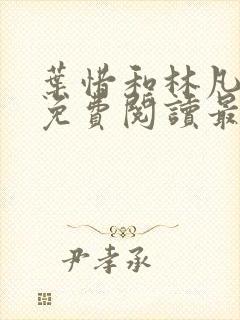 葉惜和林凡
免費閱讀最
尹孝承